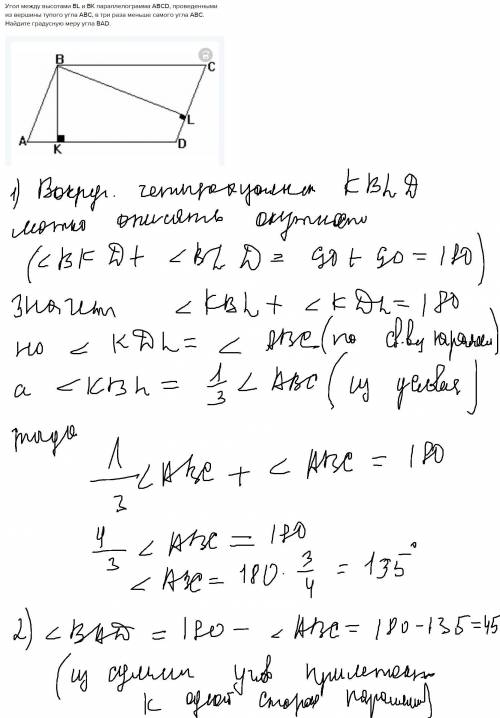 Угол между высотами BL и BK параллелограмма ABCD, проведенными
из вершины тупого угла ABC, в три раза меньше самого угла ABC.
Найдите градусную меру угла BAD.
B
C
L
A
K
D
1) Вокруг. четырехугольника KBLD
можно описать окружность
(∠BKD + ∠BLD = 90 + 90 = 180)
Значит ∠KBL + ∠KDL = 180
но ∠KDL = ∠ABC (по св-ву паралл)
а ∠KBL = 1/3 ∠ABC (из условия)
тогда
1/3 ∠ABC + ∠ABC = 180
4/3 ∠ABC = 180
∠ABC = 180 · 3/4 = 135°
2) ∠BAD = 180 - ∠ABC = 180 - 135 = 45
(из суммы углов прилежащ
к одной стороне параллел)